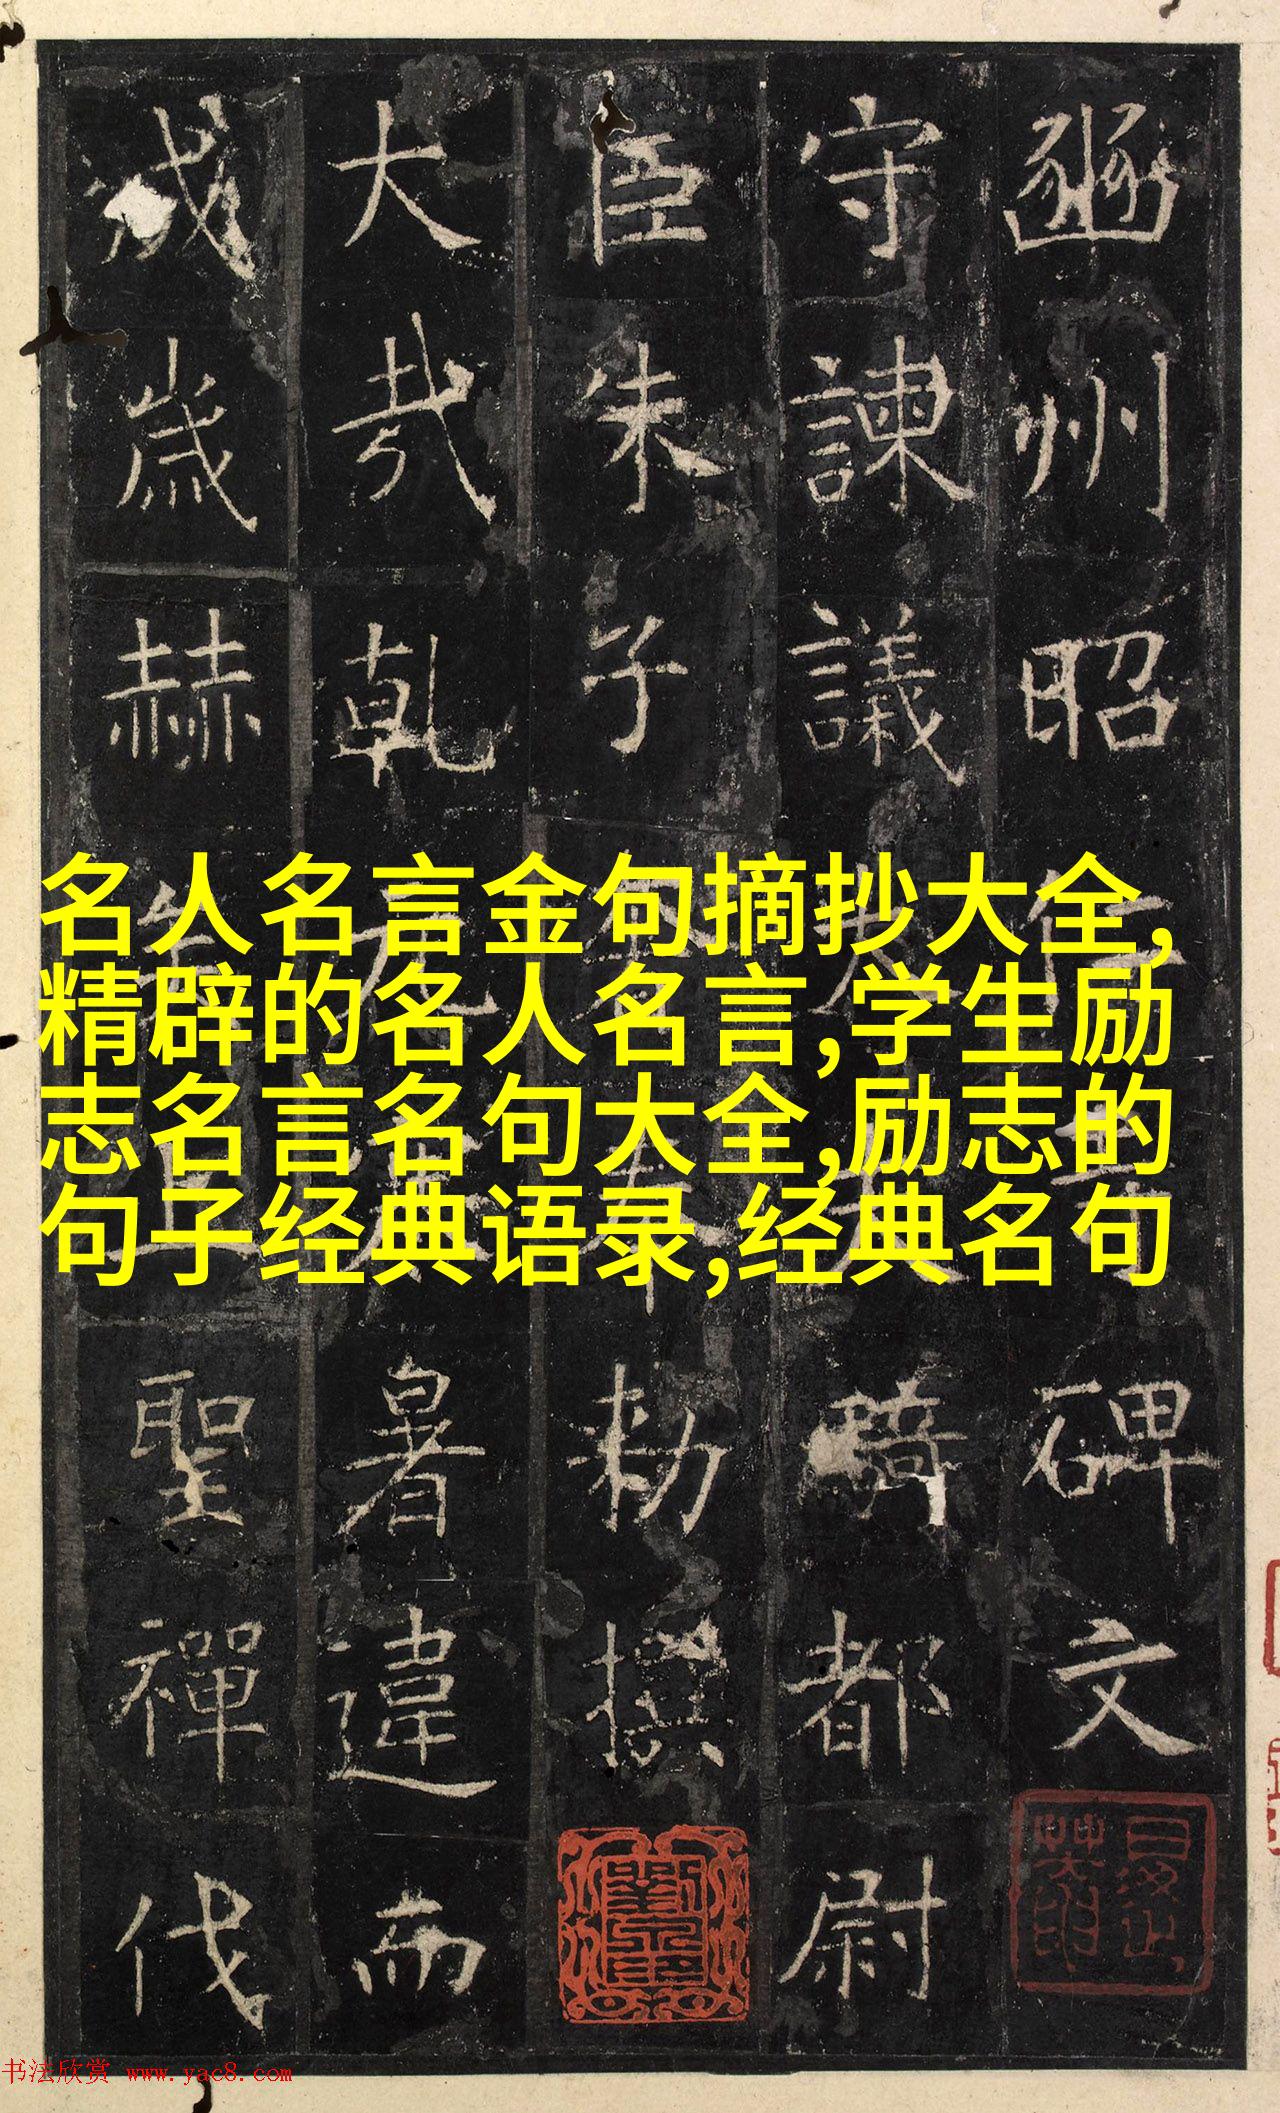 豳州昭仁寺碑文
守諫議大夫騎都尉
臣朱子奢奉勅撰
大哉乾元寒暑違而
成歲赫矣皇王聖禪代
名人名言金句摘抄大全,
精辟的名人名言,学生励
志名言名句大全,励志的
句子经典语录,经典名句
书法欣赏 www.yac8.com